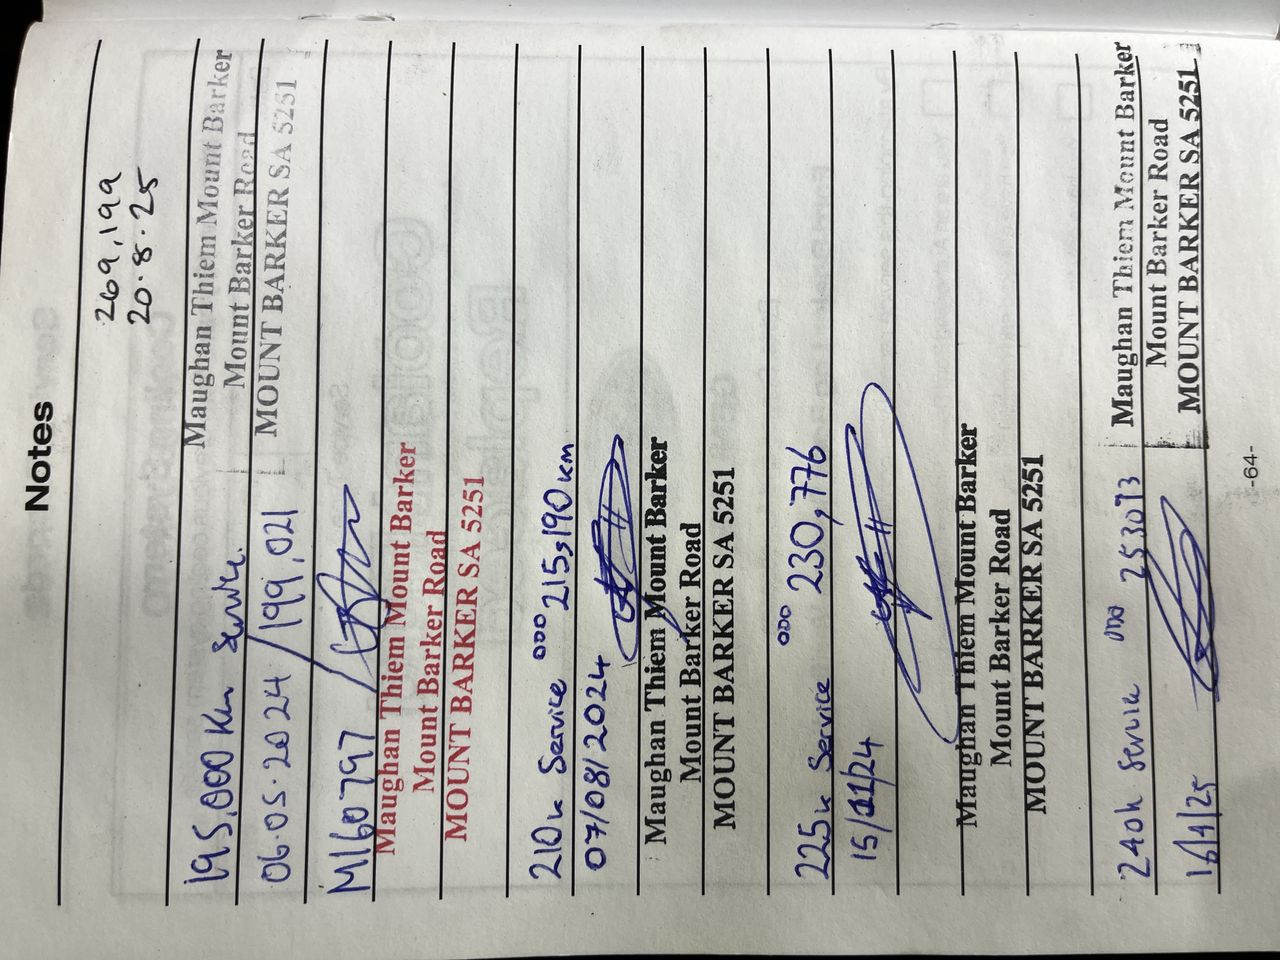 Notes
269,199
20.8.25
Maughan Thiem Mount Barker
Mount Barker Road
MOUNT BARKER SA 5251
195,000 Km Service
06.05.2024 / 199,021
M160797
Maughan Thiem Mount Barker
Mount Barker Road
MOUNT BARKER SA 5251
210k Service ODO 215,190km
07/08/2024
Maughan Thiem Mount Barker
Mount Barker Road
MOUNT BARKER SA 5251
225k Service ODO 230,776
15/11/24
Maughan Thiem Mount Barker
Mount Barker Road
MOUNT BARKER SA 5251
Maughan Thiem Mount Barker
Mount Barker Road
MOUNT BARKER SA 5251
240k Service ODO
-64-